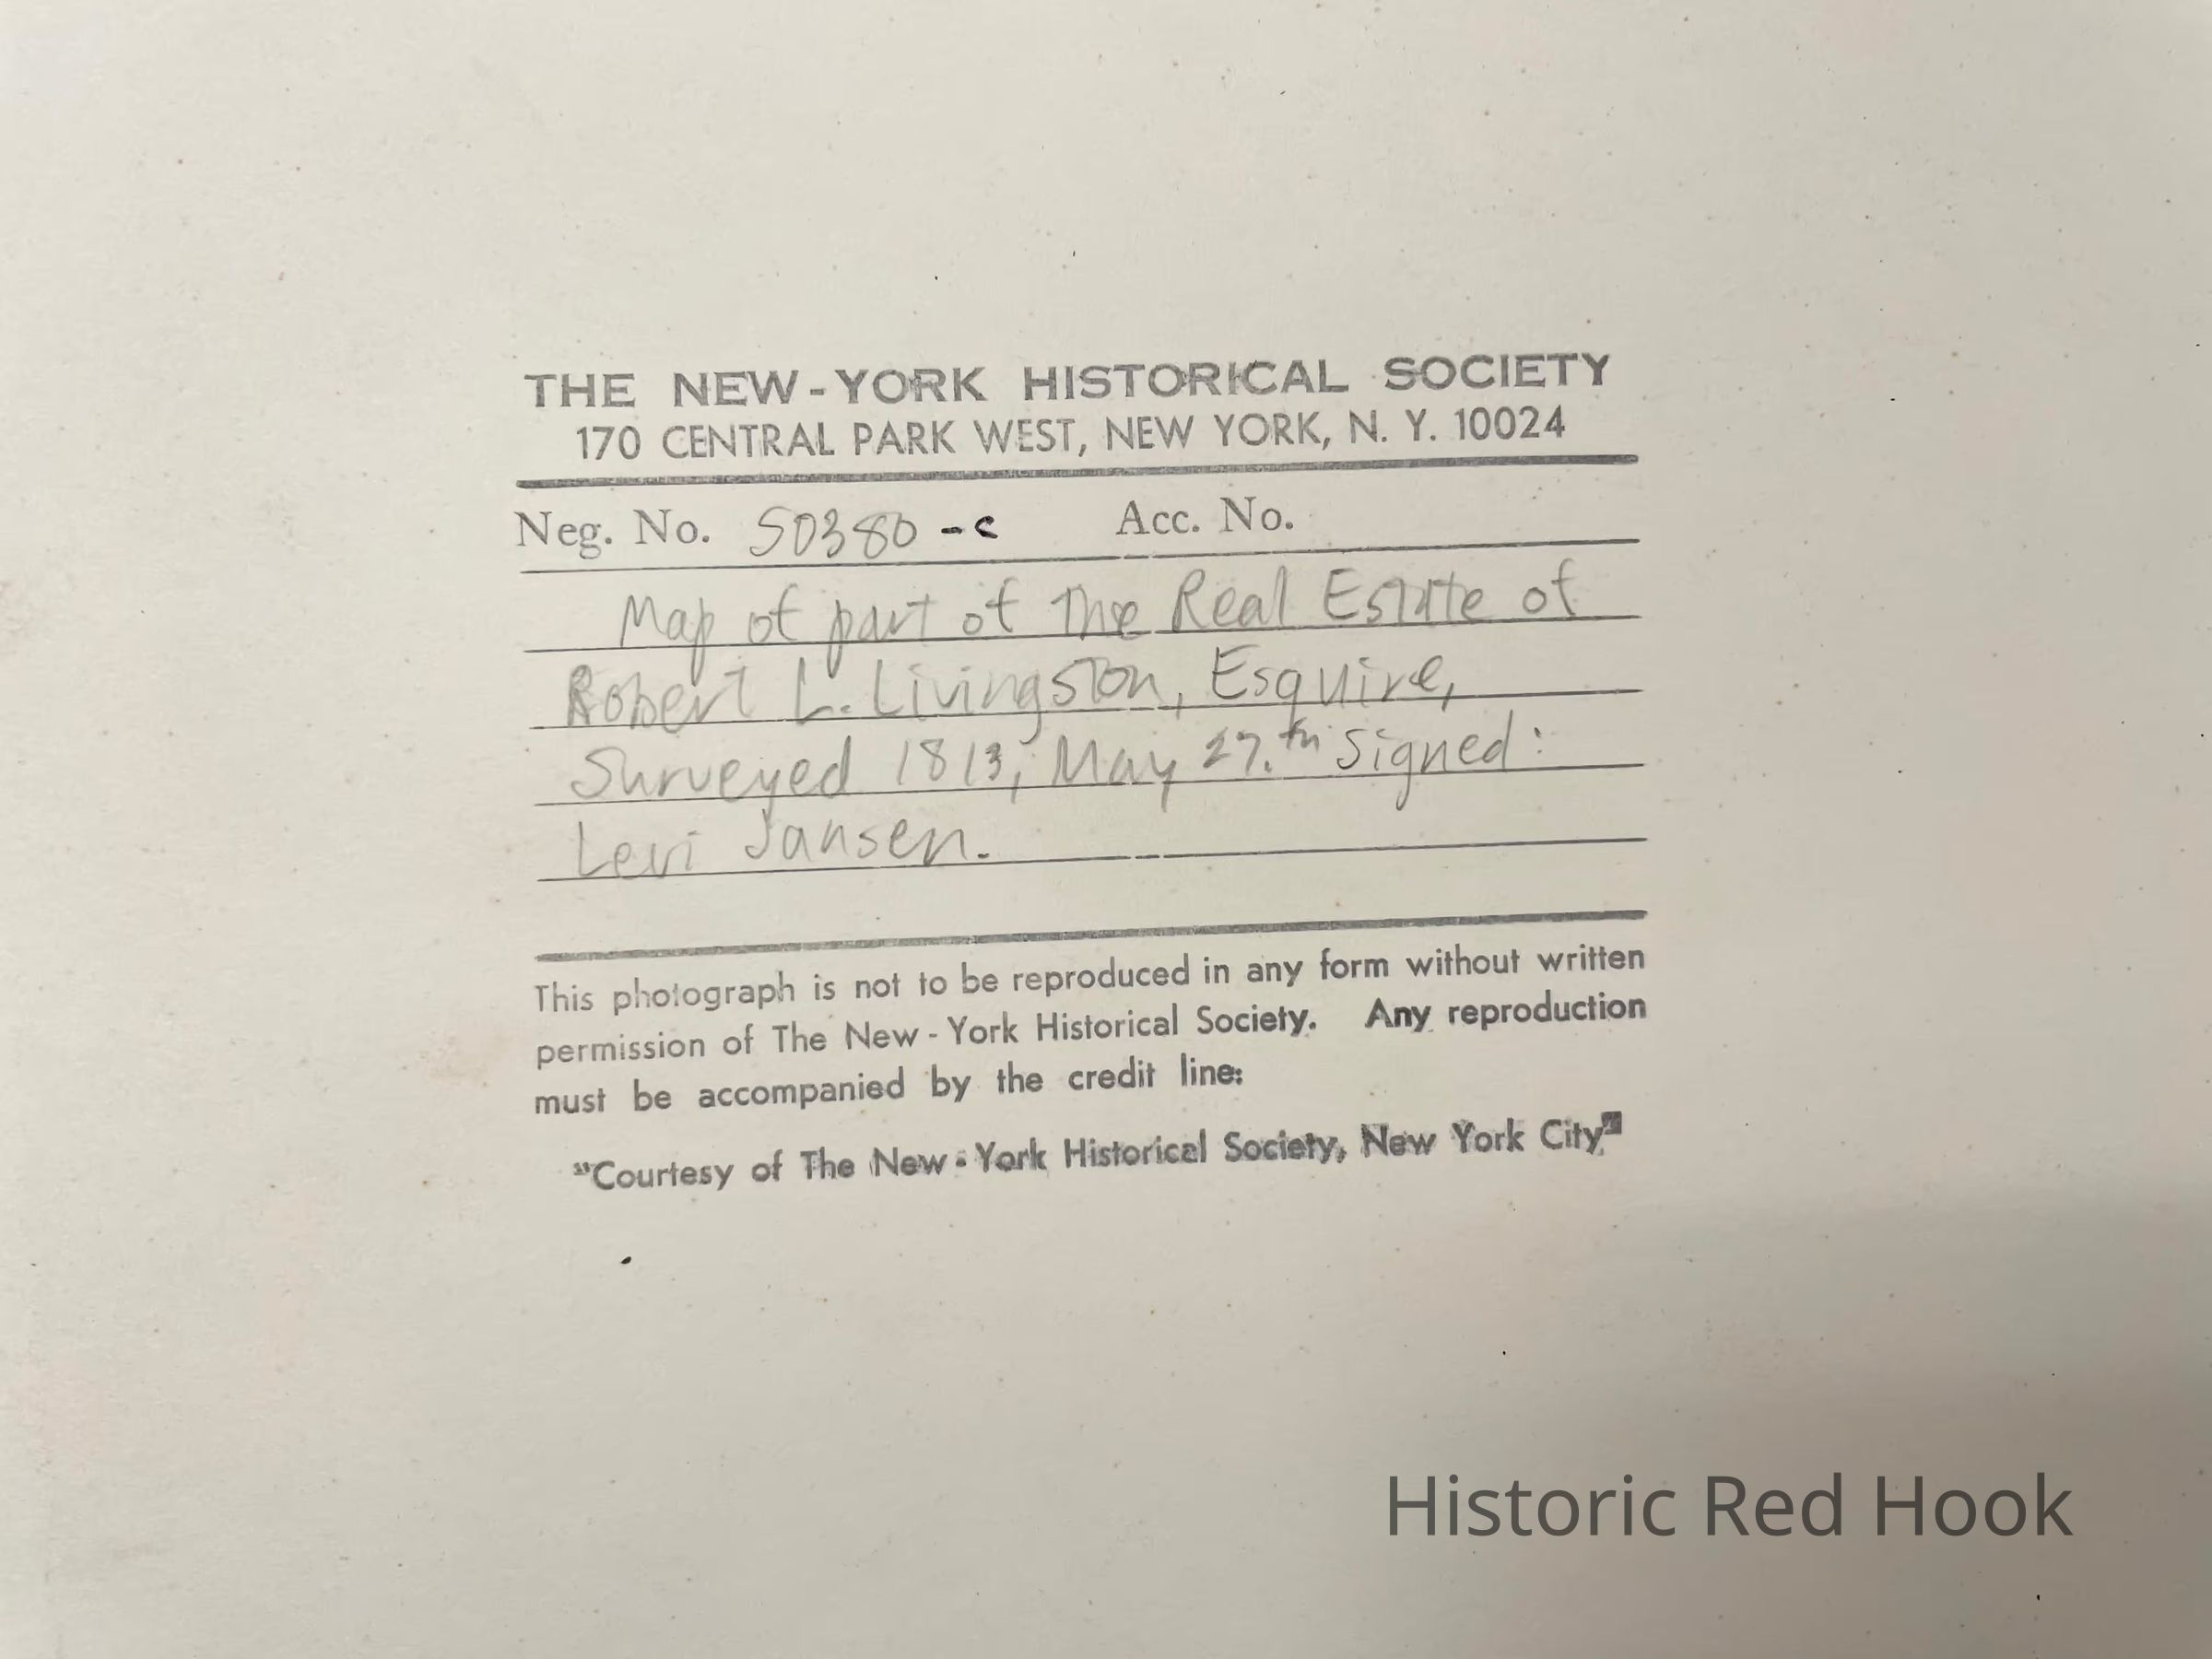 THE NEW-YORK HISTORICAL SOCIETY
170 CENTRAL PARK WEST, NEW YORK, N. Y. 10024
Neg. No. 50380 -c Acc. No.
Map of part of the Real Estate of
Robert L. Livingston, Esquire,
Surveyed 1813, May 27.th Signed:
Levi Jansen.
This photograph is not to be reproduced in any form without written
permission of The New-York Historical Society. Any reproduction
must be accompanied by the credit line:
"Courtesy of The New-York Historical Society, New York City"
Historic Red Hook